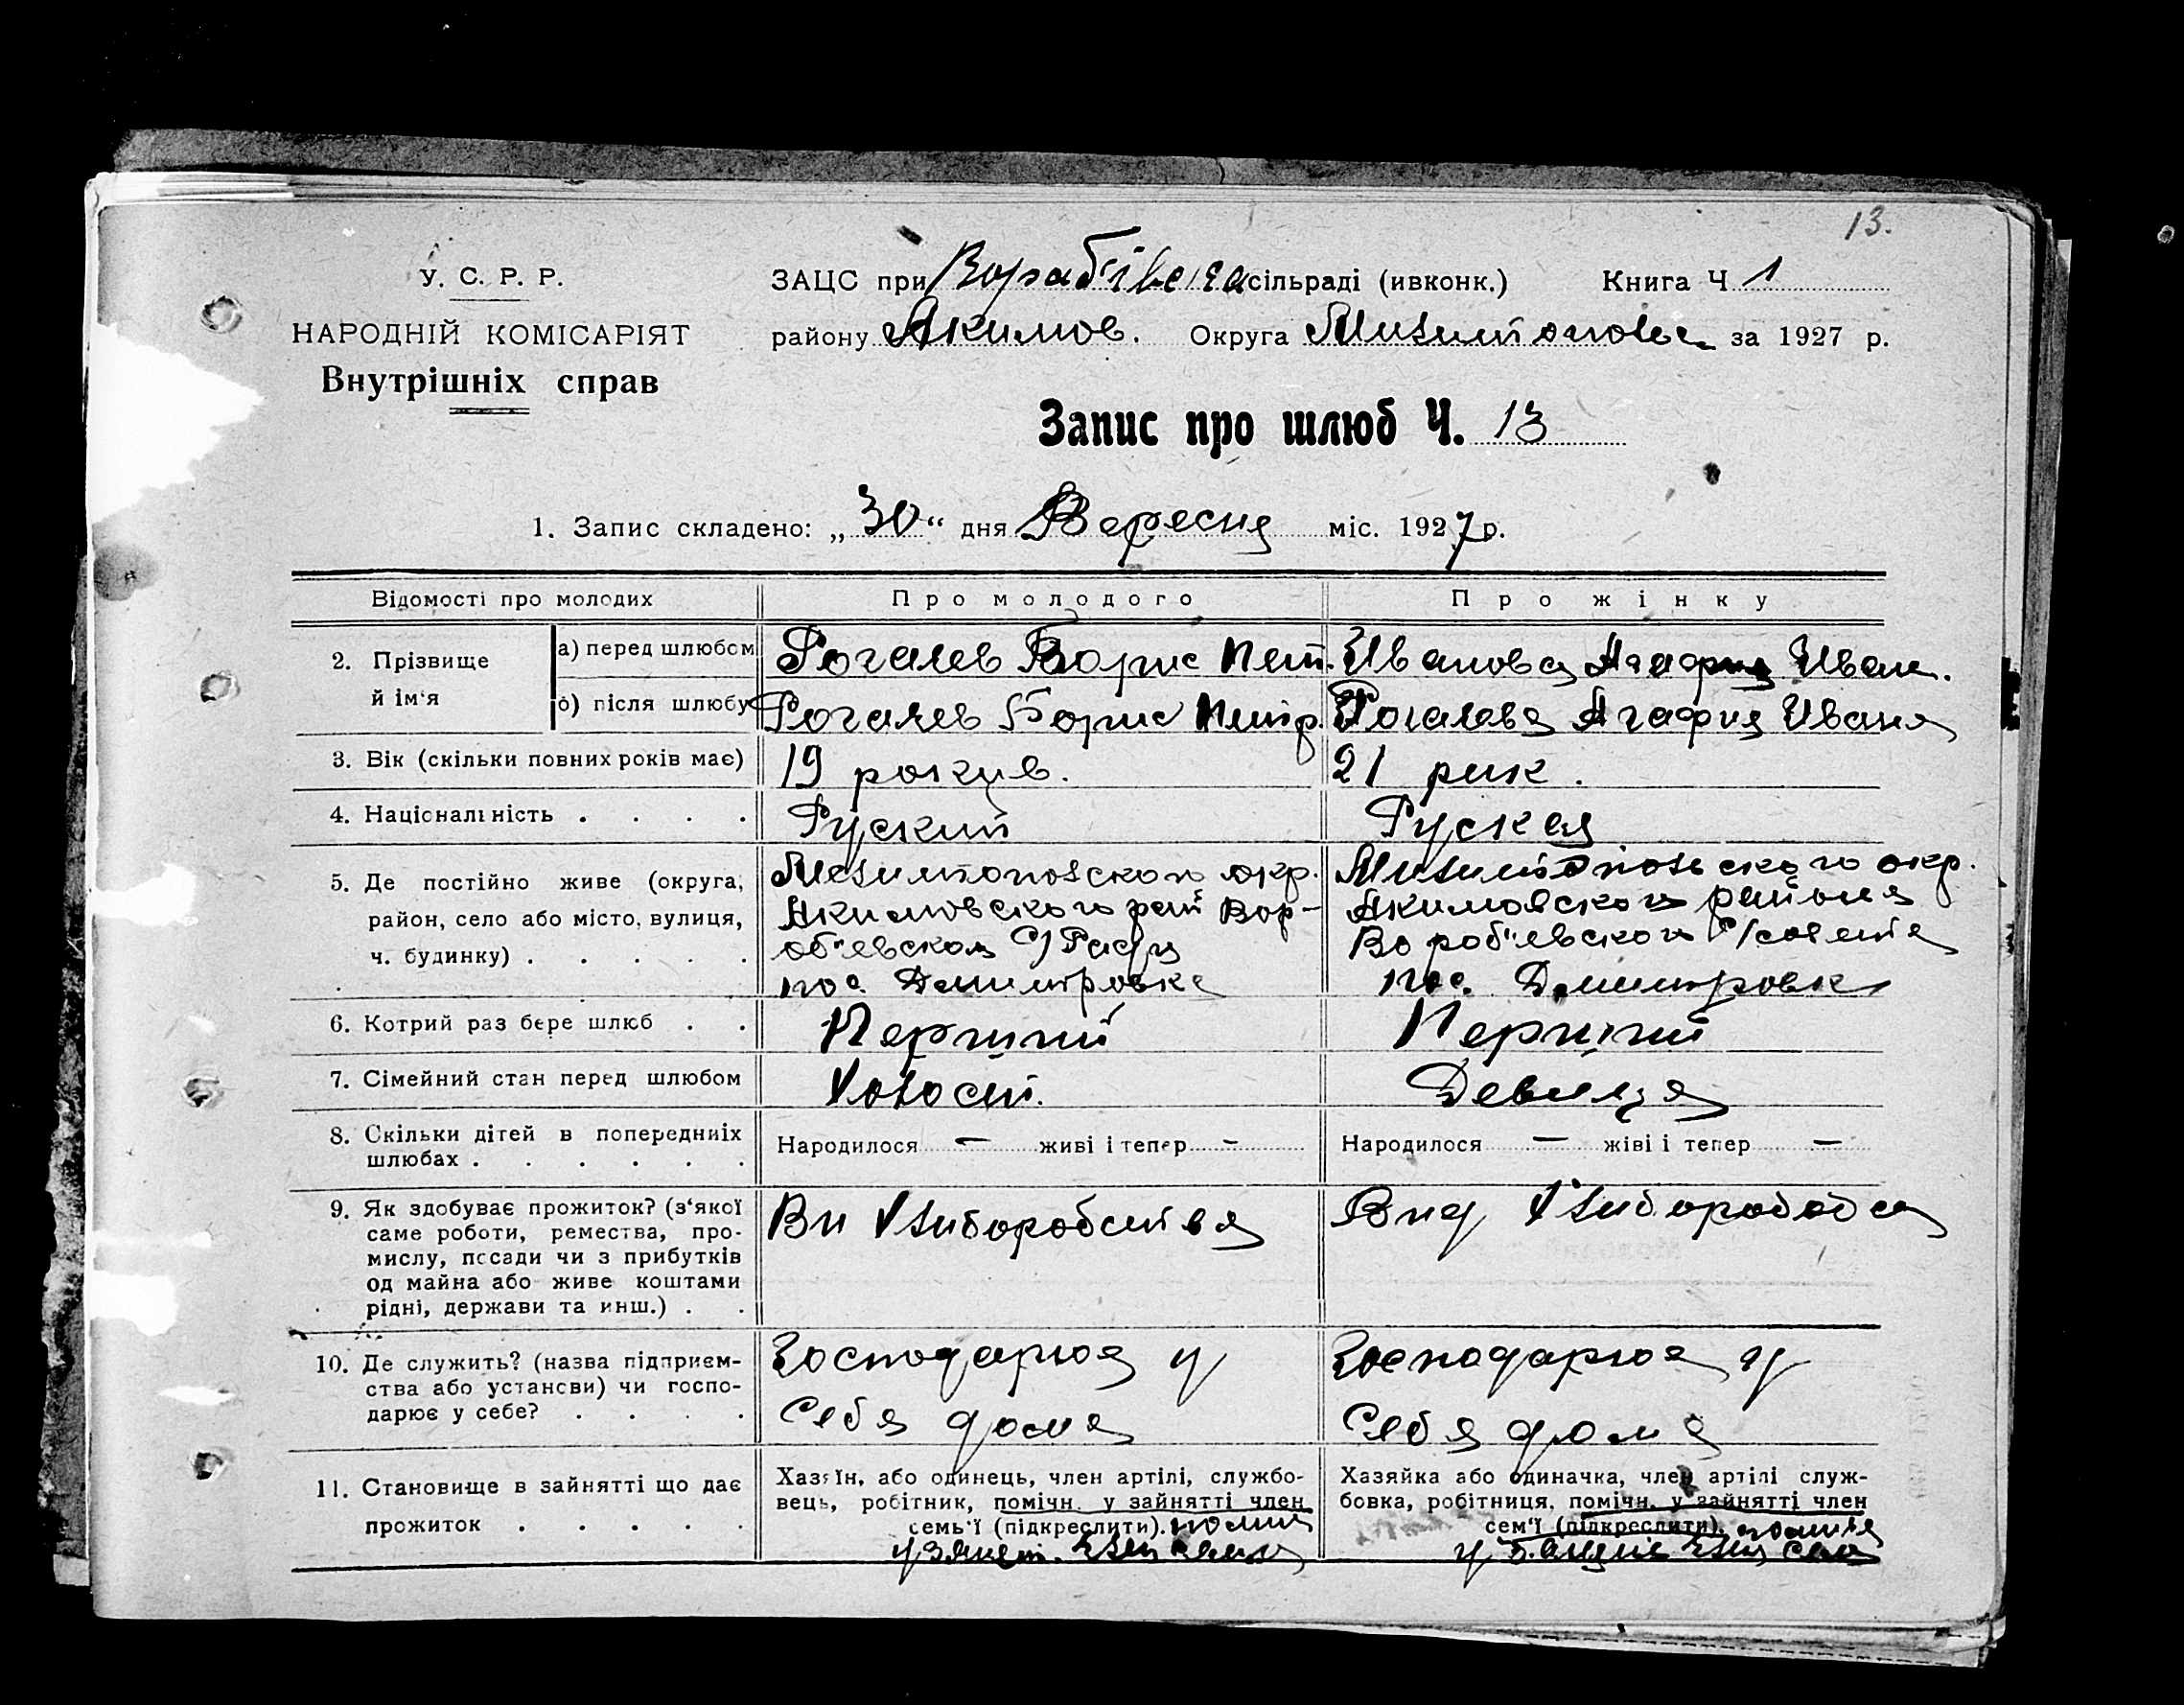 13.
У. С. Р. Р.
НАРОДНІЙ КОМІСАРІЯТ
Внутрішніх справ
ЗАЦС при сільраді (ивконк.) Книга Ч 1
району Акимов. Округа за 1927 р.
Запис про шлюб Ч. 13
1. Запис складено: „30“ дня Вересня міс. 1927 р.
Відомості про молодих Про молодого Про жінку
2. Прізвище й ім‘я
а) перед шлюбом Рогалев Борис Пет. Иванова Агафия Иван.
б) після шлюбу Рогалев Борис Петр. Рогалева Агафия Ивана
3. Вік (скільки повних років має) 19 рокив. 21 рик.
4. Національність . . . . Руский Руская
5. Де постійно живе (округа, район, село або місто, вулиця, ч. будинку) . . . . .
Мелитопольского окр.
Акимовского рай Вор-
об"евской С/Рады
пос. Дмитровка
Мелитопольского окр.
Акимовского района
Вороб"евского С/совета
пос. Дмитровка
6. Котрий раз бере шлюб . . Перший Перший
7. Сімейний стан перед шлюбом Холост. Девица
8. Скільки дітей в попередниіх шлюбах . . . . . .
Народилося — живі і тепер - Народилося — жіві і тепер —
9. Як здобуває прожиток? (з‘якої
саме роботи, ремества, про-
мислу, посади чи з прибутків
од майна або живе коштами
рідні, держави та инш.) . .
Ви Хлиборобства
Вид
10. Де служить? (назва підприєм-
ства або установи) чи госпо-
дарює у себе? . . . .
Господарюя у
Себя дома
Господарюя у
Себя дома
11. Становище в зайнятті що дає
прожиток . . . . .
Хазяїн, або одинець, член артілі, службо-
вець, робітник, помічн. у зайнятті член
семь‘ї (підкреслити).
Хазяйка або одиначка, член артілі служ-
бовка, робітниця, помічн. у зайнятті член
сем‘ї (підкреслити).